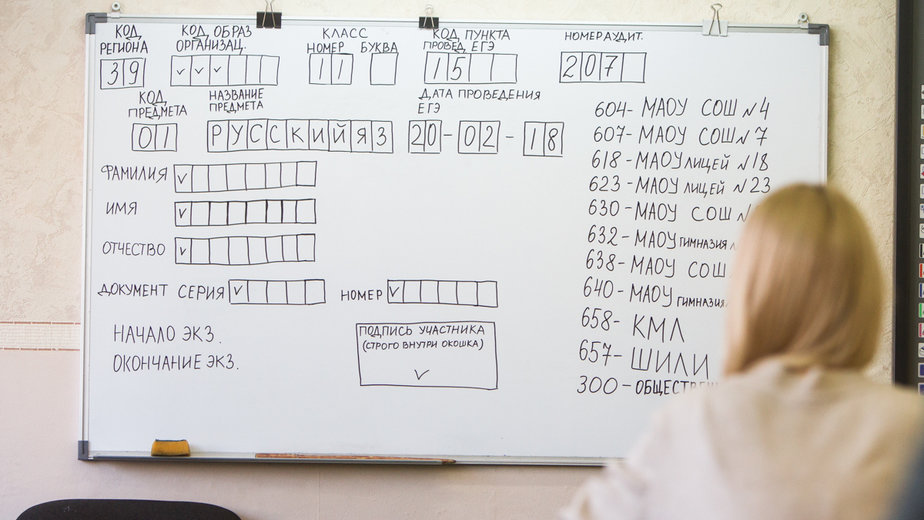 КОД РЕГИОНА
39
КОД ОБРАЗ ОРГАНИЗАЦ.
КЛАСС
НОМЕР БУКВА
11
КОД ПУНКТА ПРОВЕД. ЕГЭ
15
НОМЕР АУДИТ.
207
КОД ПРЕДМЕТА
01
НАЗВАНИЕ ПРЕДМЕТА
РУССКИЙ ЯЗ
ДАТА ПРОВЕДЕНИЯ ЕГЭ
20-02-18
ФАМИЛИЯ
ИМЯ
ОТЧЕСТВО
ДОКУМЕНТ СЕРИЯ
НОМЕР
НАЧАЛО ЭКЗ.
ОКОНЧАНИЕ ЭКЗ.
ПОДПИСЬ УЧАСТНИКА
(СТРОГО ВНУТРИ ОКОШКА)
604- МАОУ СОШ №4
607- МАОУ СОШ №7
618- МАОУ ЛИЦЕЙ №18
623- МАОУ ЛИЦЕЙ №23
630- МАОУ СОШ №
632- МАОУ ГИМНАЗИЯ
638- МАОУ СОШ
640- МАОУ ГИМНАЗИЯ
658- КМЛ
657- ШИЛИ
300-